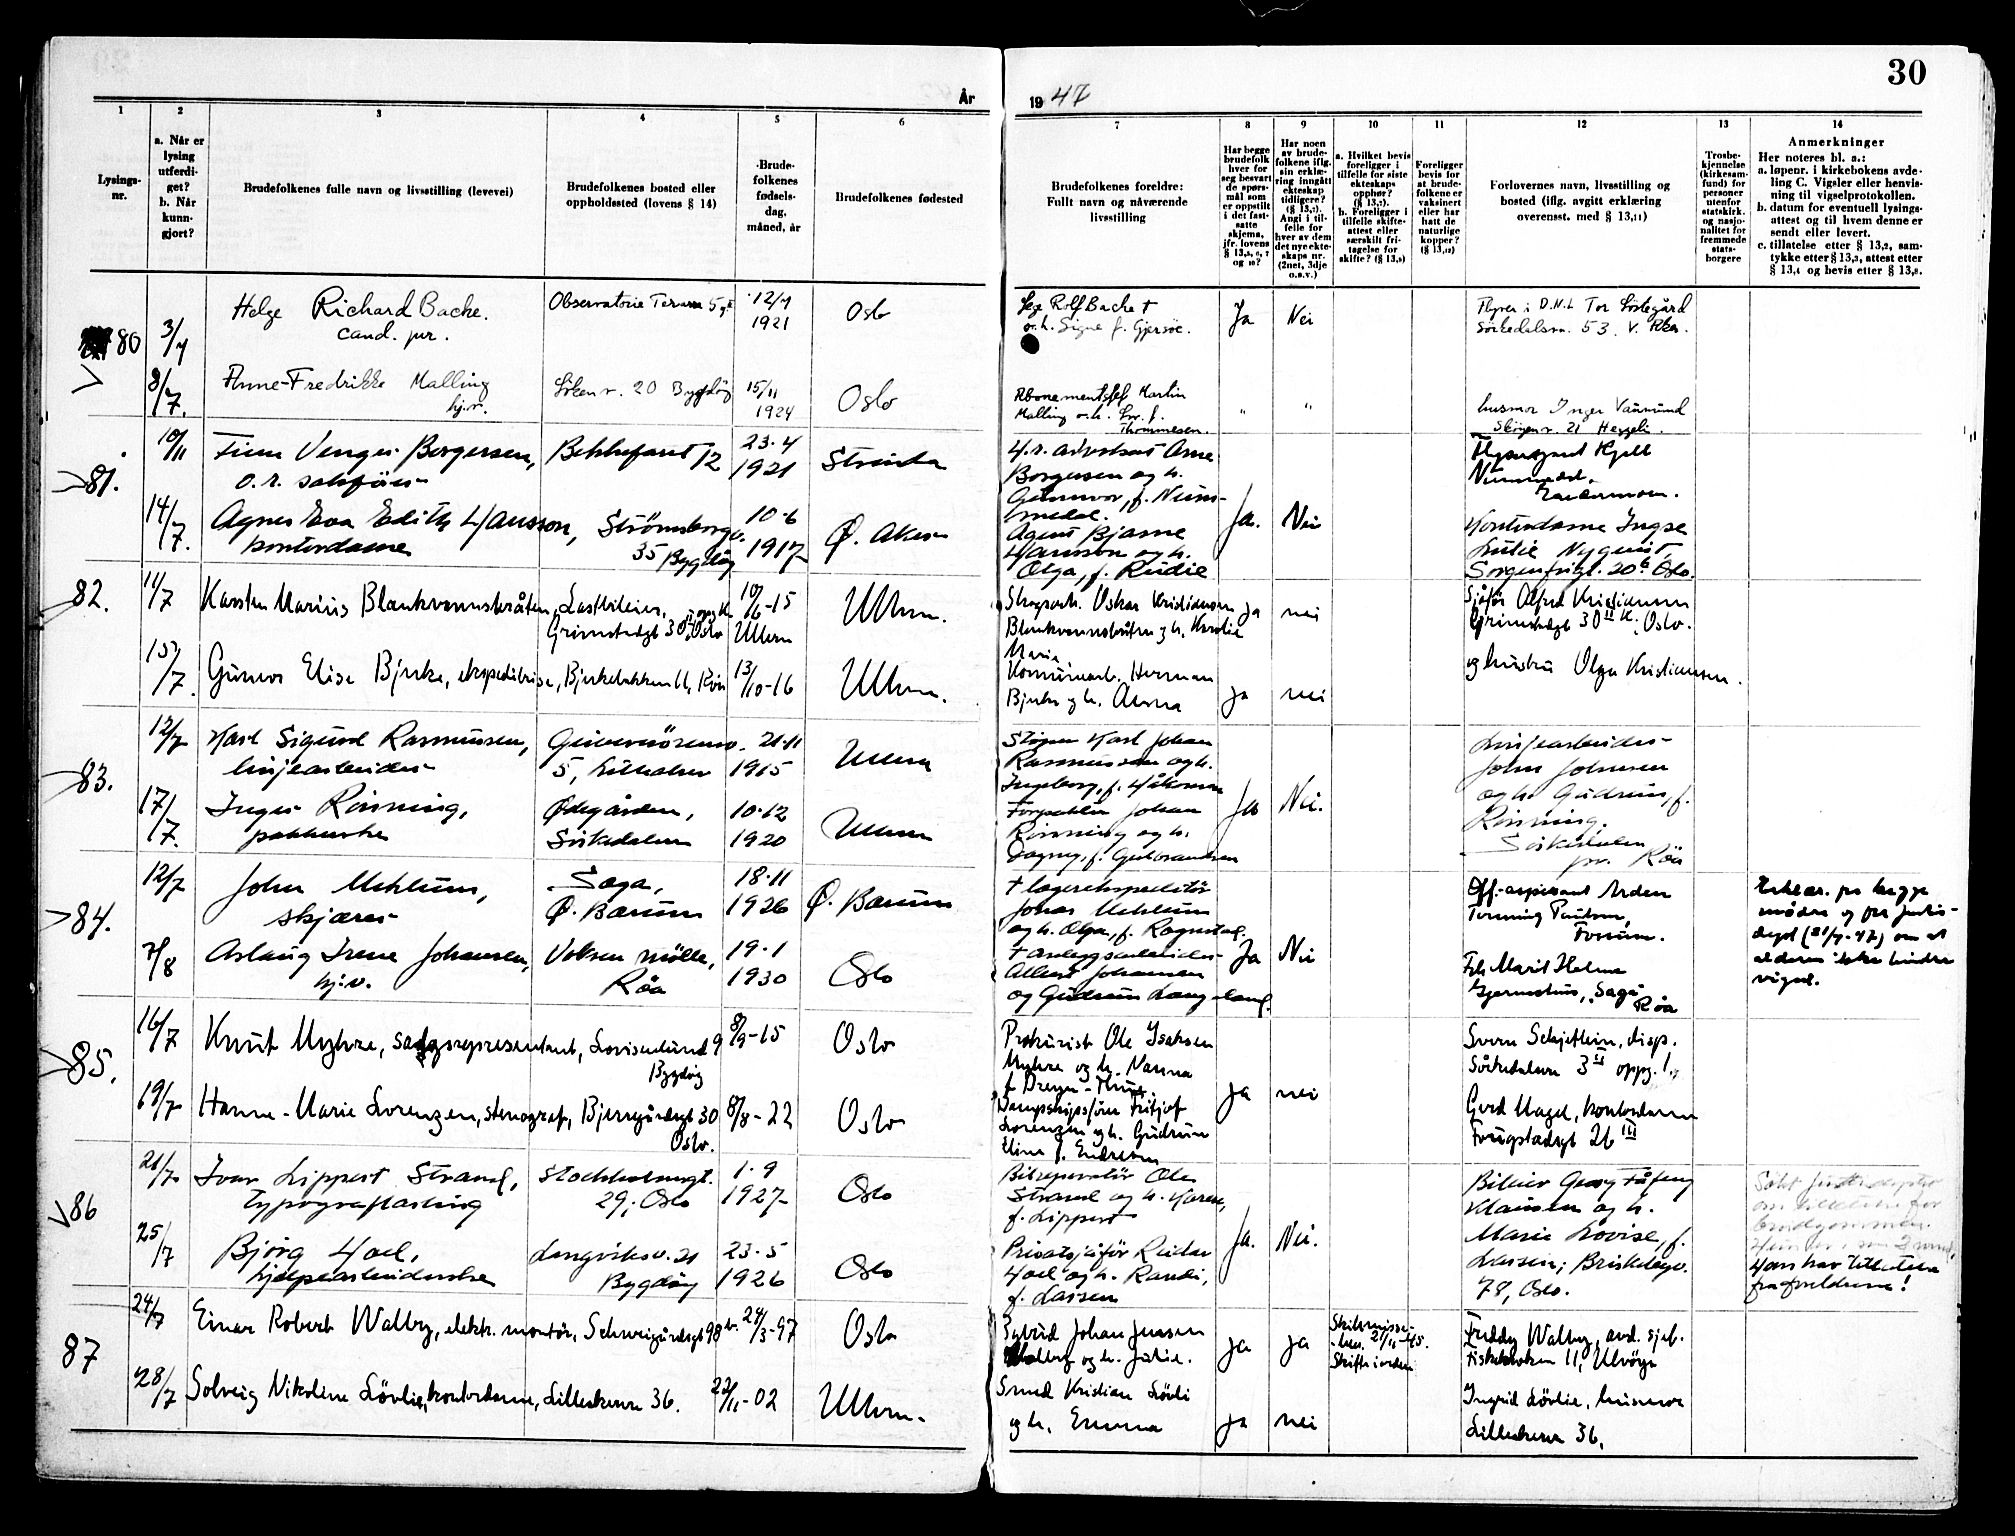 30
År
19 47
1
Lysings-
nr.
2
a. Når er
lysing
utferdi-
get?
b. Når
kunn-
gjort?
3
Brudefolkenes fulle navn og livsstilling (levevei)
4
Brudefolkenes bosted eller
oppholdssted (lovens § 14)
5
Brude-
folkenes
fødsels-
dag,
måned, år
6
Brudefolkenes fødested
7
Brudefolkenes foreldre:
Fullt navn og nåværende
livsstilling
8
Har begge
brudefolk
hver for
seg besvart
de spørs-
mål som
er oppstilt
i det fast-
satte
skjema,
jfr. lovens
9
Har noen
av brude-
folkene iflg.
sin erklæ-
ring inngått
ekteskap
tidligere?
Angi i til-
felle for
hver av dem
det nye ekte-
skaps nr.
(2net, 3dje
o.s.v.)
10
a. Hvilket bevis
foreligger i
tilfelle for siste
ekteskaps
opphør?
b. Foreligger i
tilfelle skifte-
attest eller
særskilt fri-
tagelse for
skifte?
11
Foreligger
bevis for
at brude-
folkene er
vaksinert
eller har
hatt de
naturlige
kopper?
12
Forlovernes navn, livsstilling og
bosted (iflg. avgitt erklæring
overensst. med § 13,11)
13
Trosbe-
kjennelse
(kirkesam-
fund) for
personer
utenfor
statskirk.
og nasjo-
nalitet for
fremmede
stats-
borgere
14
Anmerkninger
Her noteres bl. a.:
a. løpenr. i kirkebokens avde-
ling C. Vigsler eller henvis-
ning til vigselprotokollen.
b. datum for eventuell lysings-
attest og til hvem denne er
sendt eller levert.
c. tillatelse etter § 13,2, sam-
tykke etter § 13,3, attest etter
§ 13,4 og bevis etter § 13,8.
80
3/7
Helge Richard Bache.
cand. jur.
Observatorie Terrasse
12/7
1921
Oslo
Rolf Bache †
o.h. Signe f. Gjersøe.
Ja
Nei
Flyver i D.N.L. Tor
Sørkedalsvn. 53. V. Aker.
8/7.
Anne-Fredrikke Malling
hj.v.
20 Bygdöy
15/11
1924
Oslo
Abonementssjef Martin
Malling o.h.
Thommesen.
"
"
husmor Inger
21
81.
10/11
Finn Venger Borgersen,
o.r. sakförer
Bekkefaret 12
23-4
1921
Strinda
H.r. advokat Arne
Borgersen og h.
Gunnvor, f. Num-
medal.
Kjell
Nummedal,
Gardermoen.
14/7.
Agnes Eva Edith Hansson,
kontordame
Strömsborgv.
35 Bygdöy
10-6
1917
Ø. Aker
Agent Bjarne
Hansson og h.
Olga, f. Rudie
Ja.
Nei
Kontordame Ingse
Lulie Nyquist,
Sorgenfrigt. 20b Oslo.
82.
11/7
Karsten Marius Blankvannsbråten, Lastebileier,
Grimstadgt 30 Oslo
10/6-15
Ullern
Ullern.
Skogsarb. Oskar Kristiansen
Blankvannsbråten og h. Karolie
Maria
Ja
nei
Sjåför Alfred Kristiansen
Grimstadgt 30 II K. Oslo.
15/7.
Gunvor Elise Bjerke, ekspeditrise, Bjerkebakken 16, Röa
13/10-16
Ullern.
Kommunearb. Herman
Bjerke og h. Anna
Ja
nei
og hustru Olga Kristiansen.
83.
12/7
Karl Sigurd Rasmussen,
linjearbeider
5, Lilleaker
21-11
1915
Ullern
Karl Johan
Rasmussen og h.
Ingeborg, f. Håkonsen
Linjearbeider
John Johnsen
og h. Gudrun, f.
Rönning.
Sörkedalen
pr. Röa
17/7.
Inger Rönning,
pakkerske
Ødegården,
Sörkedalen
10-12
1920
Ullern
Forpakter Johan
Rönning og h.
Dagny, f. Gulbrandsen
Ja
Nei.
84.
12/7
John Mehlum,
skjærer
Saga,
Ø. Bærum
18-11
1926
Ø. Bærum
† lagerekspeditör
Johan Mehlum
og h. Olga, f. Rognstad.
Off.-aspirant Arden
Tenning Paulsen,
Fossum.
Erklær. fra begge
mödre og fra Justis-
dept (21/7-47) om at
alderen ikke hindrer
vigsel.
7/8
Aslaug Irene Johansen,
hj.v.
Voksen mölle,
Röa
19-1
1930
Oslo
† anleggsarbeider
Albert Johansen
og Gudrun Langeland.
Ja
Nei
Frk Marit Helene
Gjermshus, Saga
Röa
85.
16/7
Knut Myhre, salgsrepresentant, Lovisenlund 9
Bygdöy
8/9-15
Oslo
Prokurist Ole Isaksen
Myhre og h. Nanna
f. Dreyer-
Svern Schjetlein, disp.
Sörkedalsvn 3 II oppg. 1.
19/7
Hanne-Marie Lorenzen, stenograf, Bjerregårdsgt 30
Oslo.
8/8-22
Oslo
Dampskipsförer Fritjof
Lorenzen og h. Gudrun
Eline f. Endresen
Ja
nei
Gerd Nagel, kontordame
Fougstadsgt 26 III
86
21/7
Ivar Lippert Strand,
typograflærling
Stockholmsgt.
29; Oslo
1-9
1927
Oslo
Bilreparatör Ole
Strand og h. Karen,
f. Lippert
Bileier Georg
Klausen og h.
Marie Lovise, f.
Larsen; Briskebyv.
78, Oslo.
Sökt justisdeptet
om tillatelse for
brudgommen.
Han har tillatelse
fra foreldrene!
25/7
Björg Hoel,
hjelpearbeiderske
Langviksv. 21
Bygdöy
23-5
1926
Oslo
Privatsjåför Reidar
Hoel og h. Randi,
f. Larsen
Ja.
Nei.
87
24/7
Einar Robert Walby, elektr. montör, Schweigårdsgt 98
24/3-97
Oslo
Johan Jensen
Walby og h. Julie.
Ja
Ja
Skilsmisse-
bev. 21/11-45.
Skifte i orden
Freddy Walby, avd. sjef.
Fiskekroken 11, Ulvöya
28/7
Solveig Nikoline Lövlie, kontordame, Lilleakervn 36.
22/11-02
Ullern.
Smed Kristian Lövli
og h. Emma
Ja
nei
Ingrid Lövlie, husmor
Lilleakervn 36.